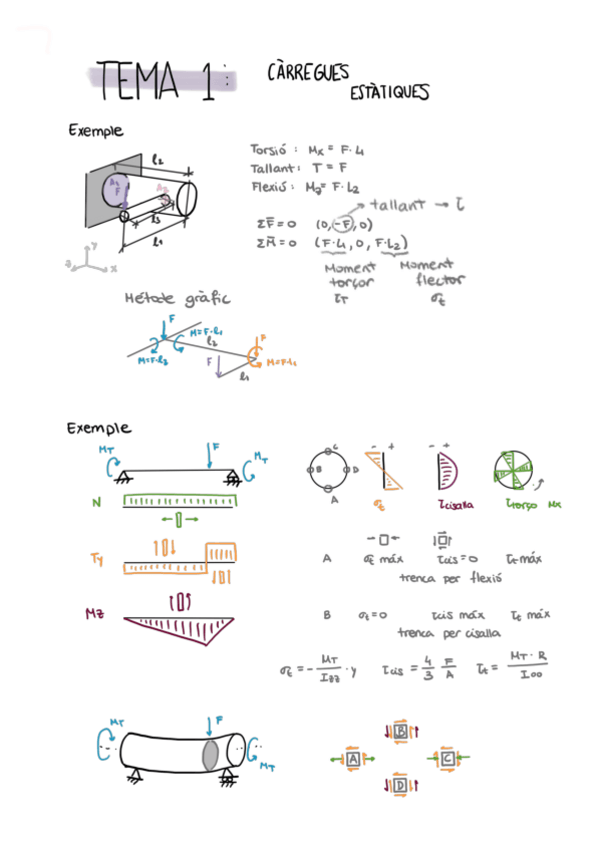 TEMA 1:
CÀRREGUES
ESTÀTIQUES
Exemple
l2
A1
F
A2
l3
l1
y
z
x
Torsió: Mx = F·L1
Tallant: T = F
Flexió: Mz = F·L2
ΣF̄=0 (0,-F,0) → tallant → τ
ΣM̄=0 (F·L1, 0, F·L2)
Moment torçor τT
Moment flector σt
Mètode gràfic
F
M=F·l1
l2
F
M=F·l2
F
M=F·l1
l1
Exemple
MT
F
MT
N
Ty
Mz
C
B
D
A
- +
σt
- +
τcisalla
τtorço Mx
A σt máx τcis=0 τt máx
trenca per flexió
B σt=0 τcis máx τt máx
trenca per cisalla
σt = - MT / Izz · y τcis = 4/3 F/A τt = MT · R / Ioo
MT
F
MT
B
A
C
D